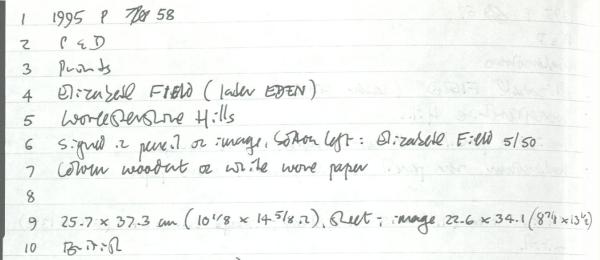 1 1995 P 58
2 P & D
3 Prints
4 Elizabeth FIELD (later EDEN)
5 Worcestershire Hills
6 Signed in pencil on image, bottom left: Elizabeth Field 5/50
7 Colour woodcut on white wove paper
8
9 25.7 x 37.3 cm (10 1/8 x 14 5/8 in), sheet; image 22.6 x 34.1 (8 7/8 x 13 1/2)
10 British